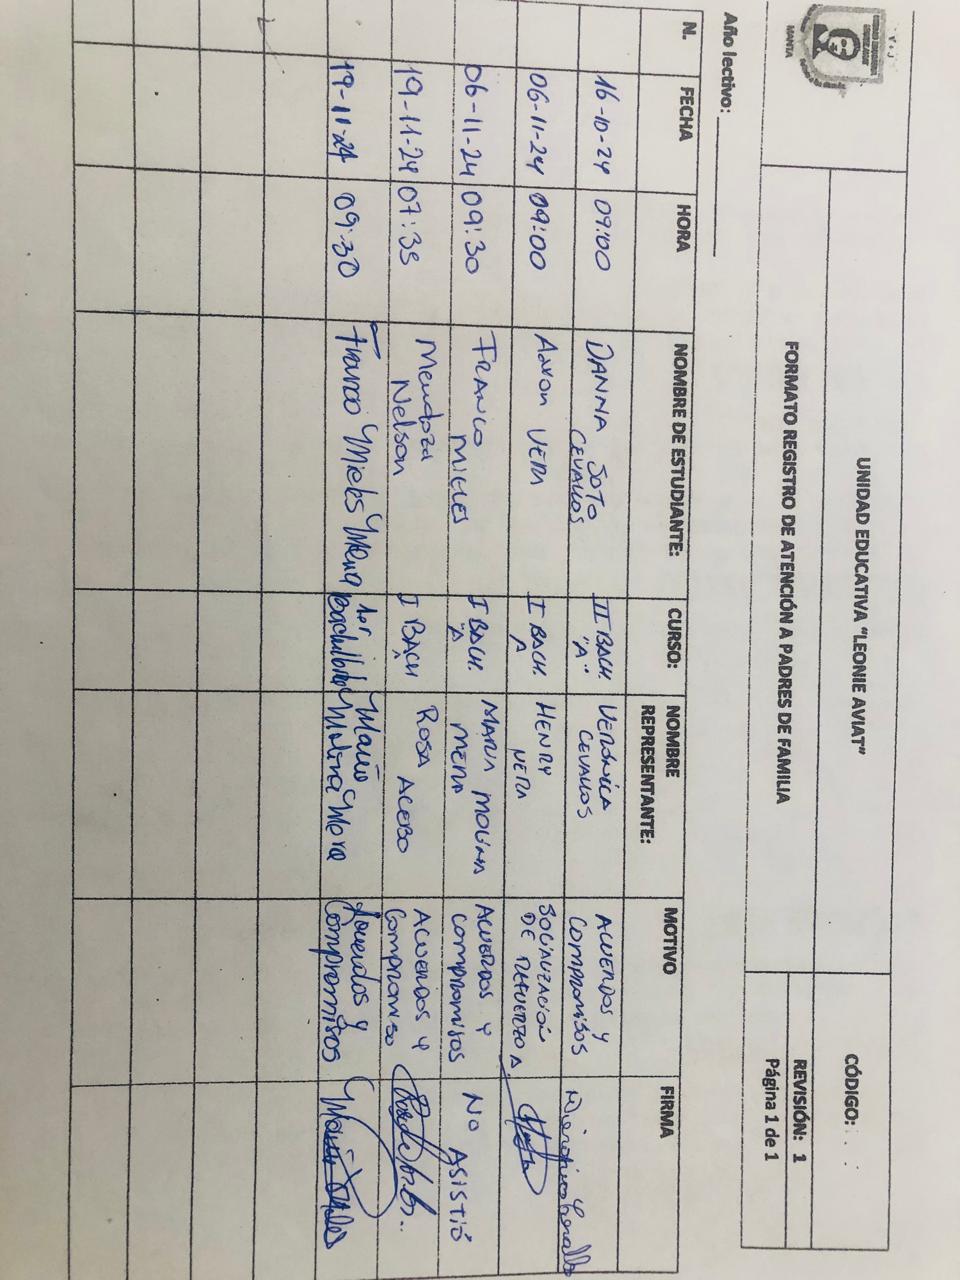 UNIDAD EDUCATIVA "LEONIE AVIAT"
FORMATO REGISTRO DE ATENCIÓN A PADRES DE FAMILIA
CÓDIGO:
REVISIÓN: 1
Página 1 de 1
MANTA
Año lectivo:
N. FECHA HORA NOMBRE DE ESTUDIANTE: CURSO: NOMBRE REPRESENTANTE: MOTIVO FIRMA
16-10-24 09:00 DANNA SOTO CEVALLOS II BACH. "A" VERÓNICA CEVALLOS ACUERDOS Y COMPROMISOS
06-11-24 09:00 VERA I BACH. A HENRY VERA SOCIALIZACIÓN DE REFUERZO A.
06-11-24 09:30 FRANCO MIELES I BACH. "A" MARIA MOLINA MERA ACUERDOS Y COMPROMISOS NO ASISTIÓ
19-11-24 07:35 Mendoza Nelson I BACH A ROSA ACEBO ACUERDOS Y COMPROMISO
19-11-24 09:30 Franco Mieles 1er Maria Molina Mera Acuerdos y Compromisos